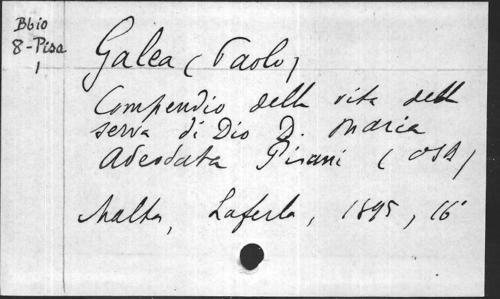 Bbio
8-Pisa
1
Galea (Paolo)
Compendio della vita della
serva di Dio D. Maria
Adeodata Pisani (OSB)
Malta, Laferla, 1895, 16°